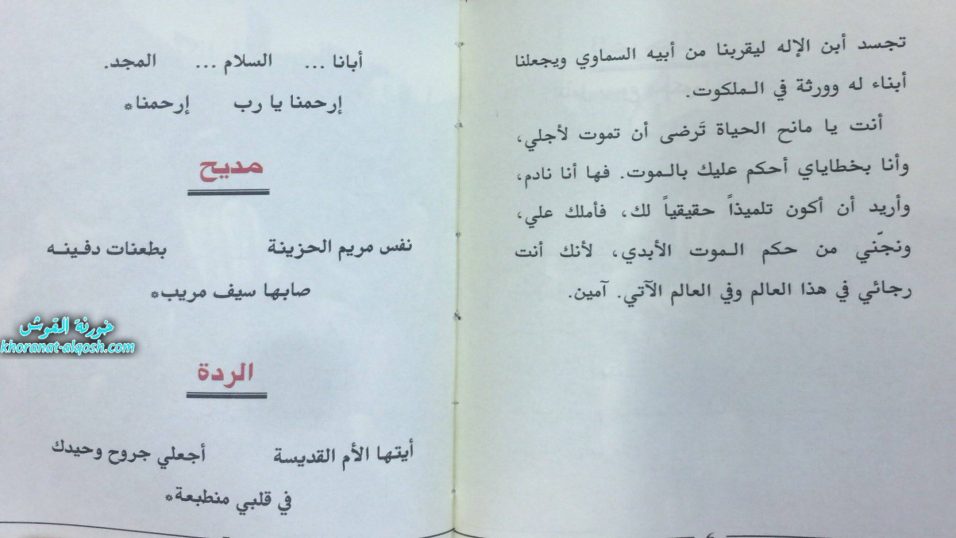 تجسد أبن الإله ليقربنا من أبيه السماوي ويجعلنا
أبناء له وورثة في الملكوت.
أنت يا مانح الحياة تَرضى أن تموت لأجلي،
وأنا بخطاياي أحكم عليك بالموت. فها أنا نادم،
وأريد أن أكون تلميذاً حقيقياً لك، فأملك علي،
ونجّني من حكم الموت الأبدي، لأنك أنت
رجائي في هذا العالم وفي العالم الآتي. آمين.
أبانا ... السلام ... المجد.
إرحمنا يا رب إرحمنا*
مديح
نفس مريم الحزينة بطعنات دفينه
صابها سيف مريب*
الردة
أيتها الأم القديسة أجعلي جروح وحيدك
في قلبي منطبعة*
خورنة القوش
khoranat-alqosh.com